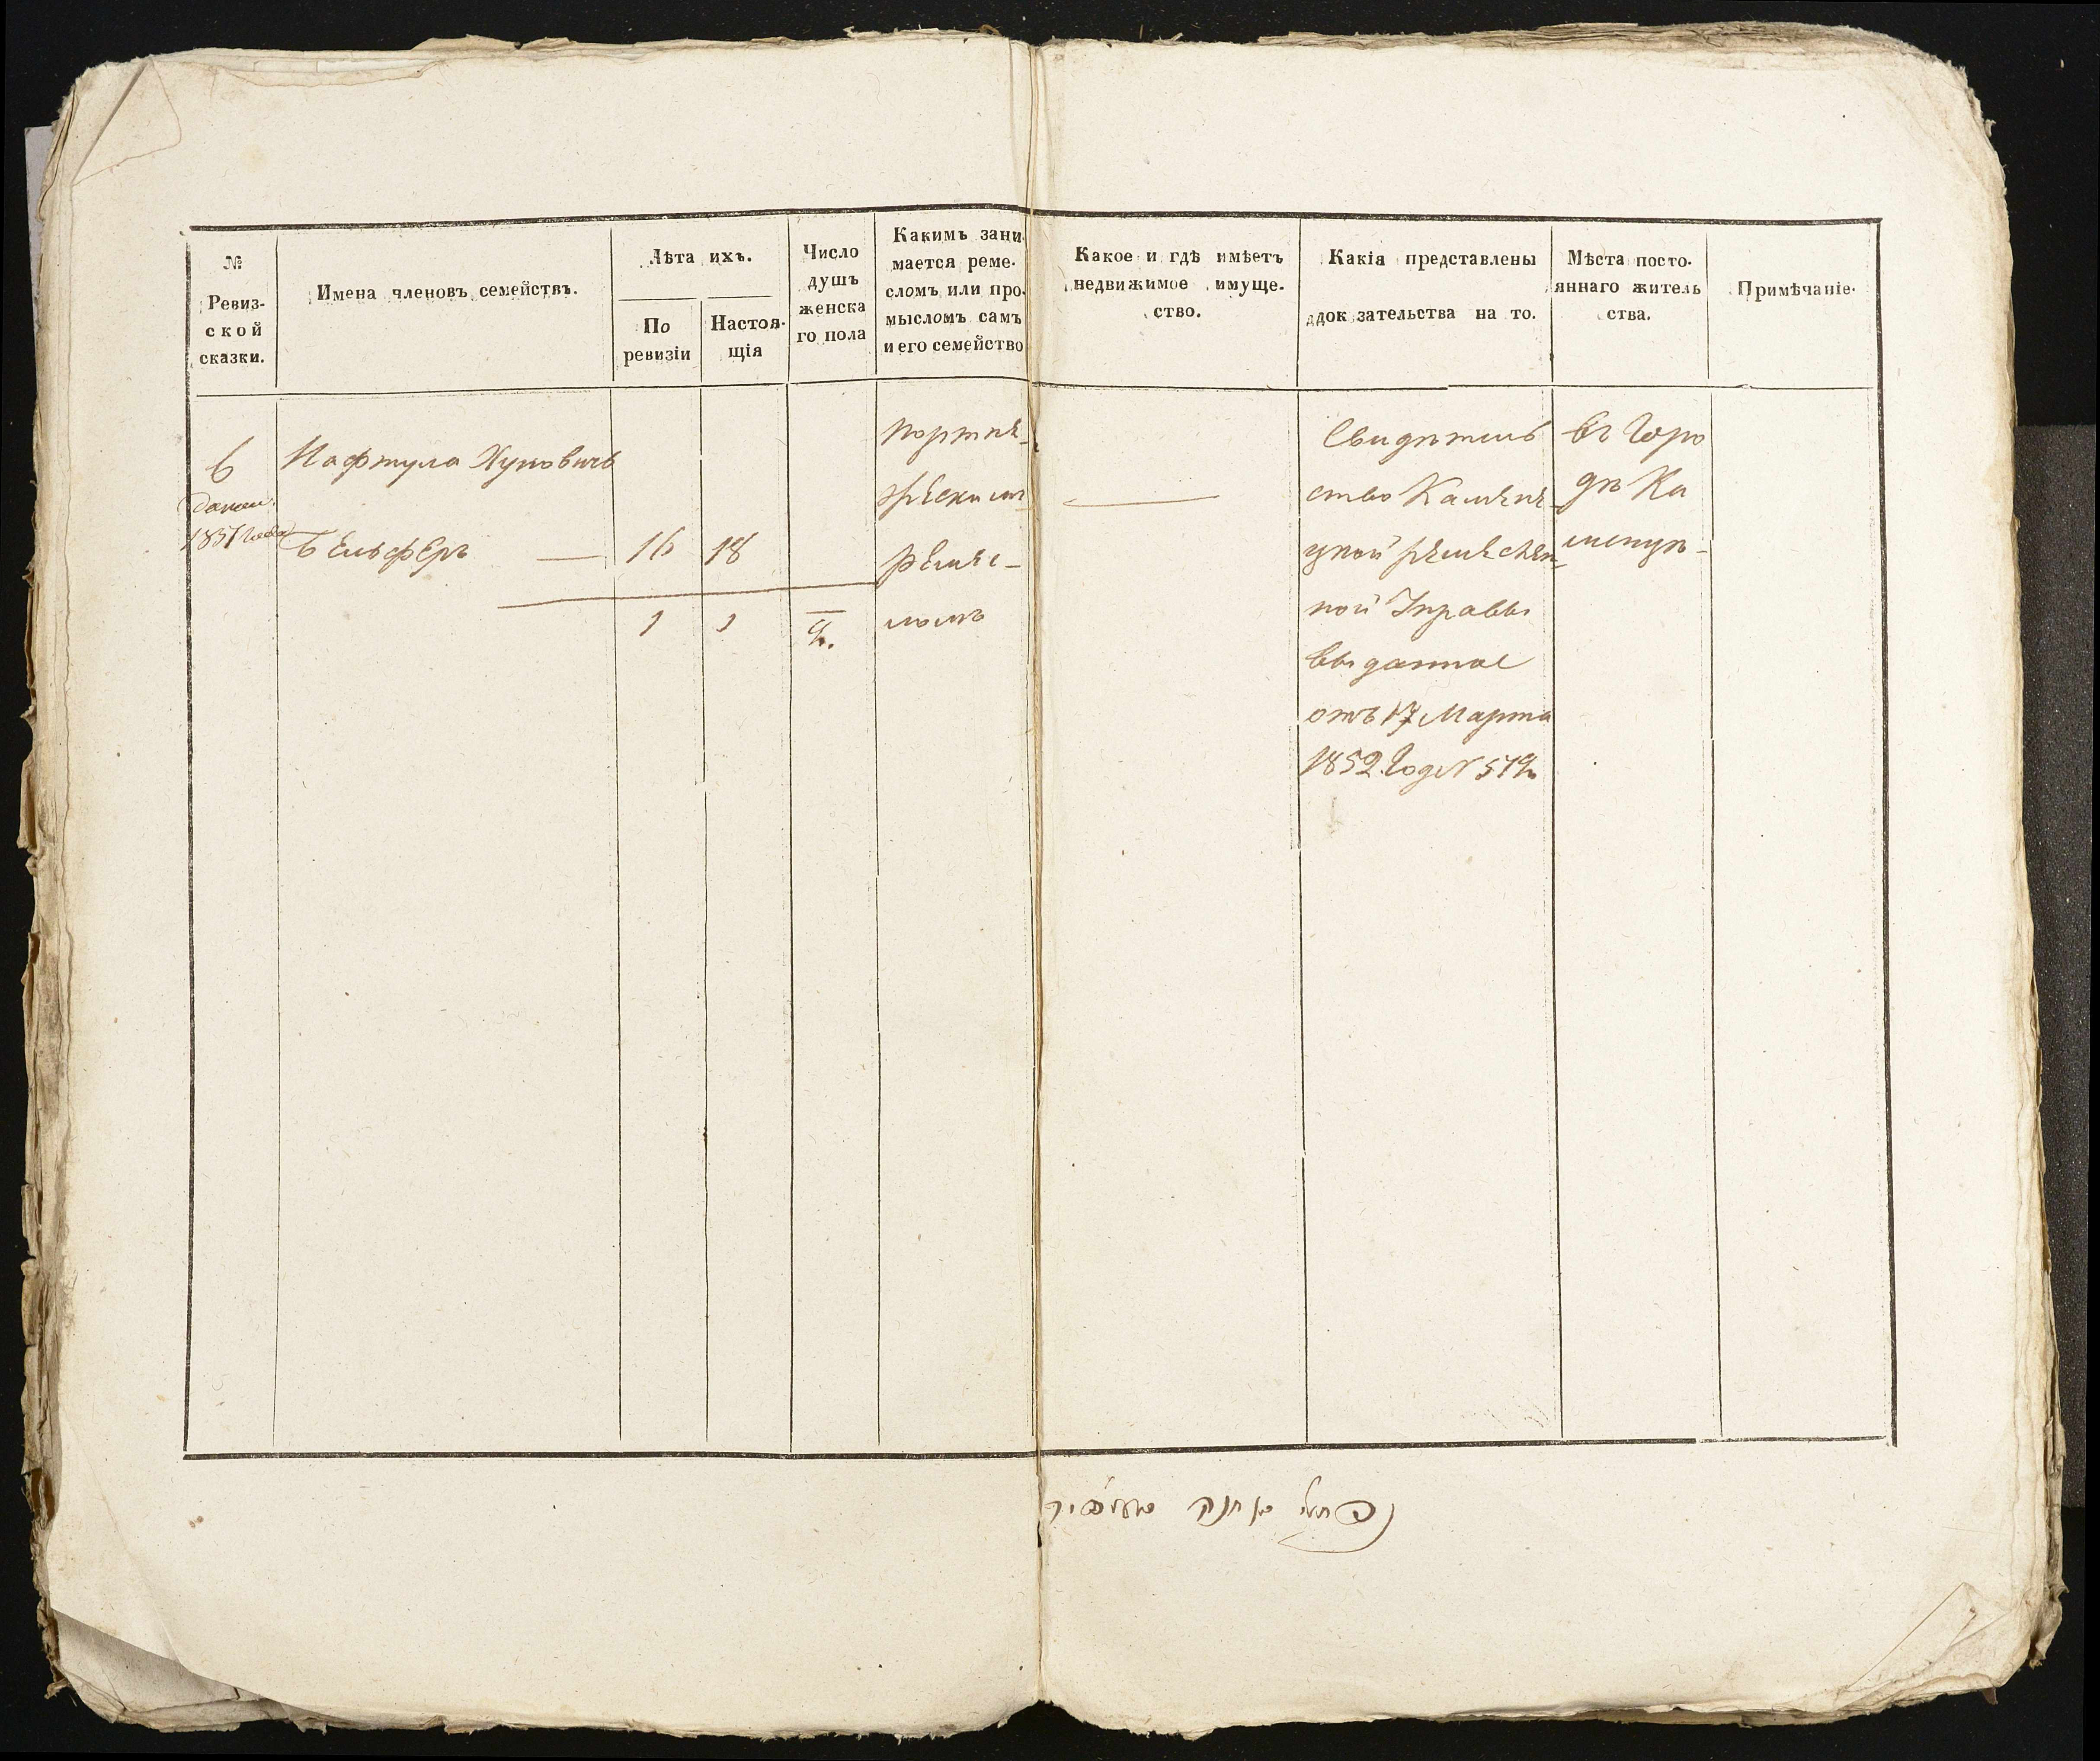 №
Ревиз-
ской
сказки.
Имена членовъ семействъ.
Лѣта ихъ.
По
ревизіи
Настоя-
щія
Число
душъ
женска
го пола
Какимъ зани-
мается реме-
сломъ или про-
мысломъ самъ
и его семейство
Какое и гдѣ имѣетъ
недвижимое имуще-
ство.
Какія представлены
док зательства на то.
Мѣста посто-
яннаго житель
ства.
Примѣчаніе.
6
1851 года
Нафтула Хуновичъ
Бельферъ — 16 18
1 1
портня-
жескимъ
ремес-
ломъ
—
Свидѣтель
ство Камене
цкой ремеслен-
ной Управы
выданное
отъ 17 Марта
1852 Год №
въ Горо
дѣ Ка
менцѣ-